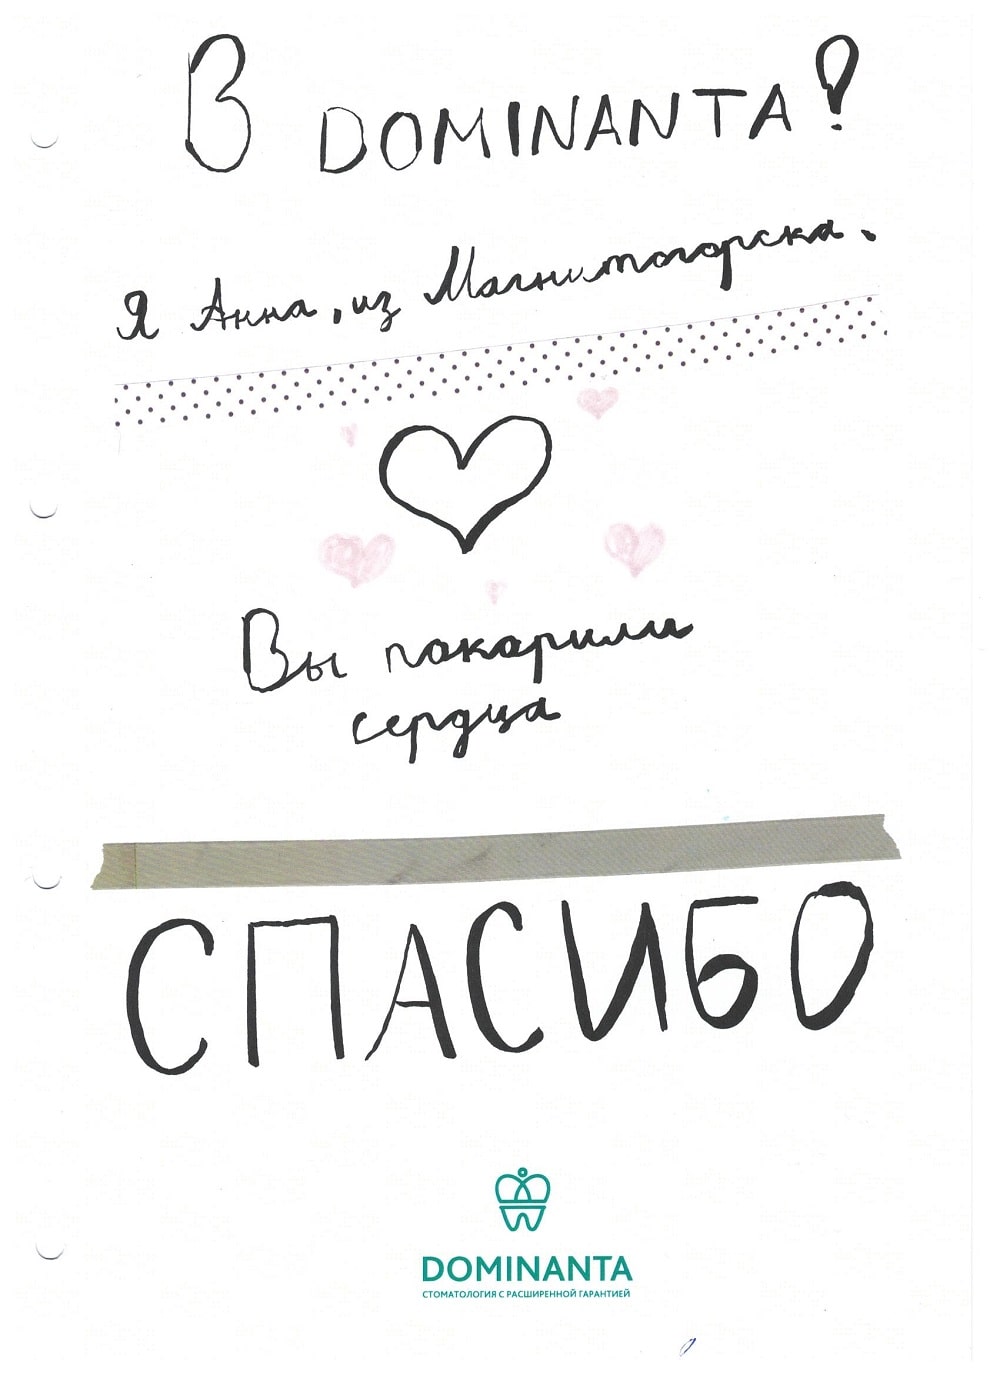 В DOMINANTA!
Я Анна, из Магнитогорска.
Вы покорили
сердца
СПАСИБО
DOMINANTA
СТОМАТОЛОГИЯ С РАСШИРЕННОЙ ГАРАНТИЕЙ